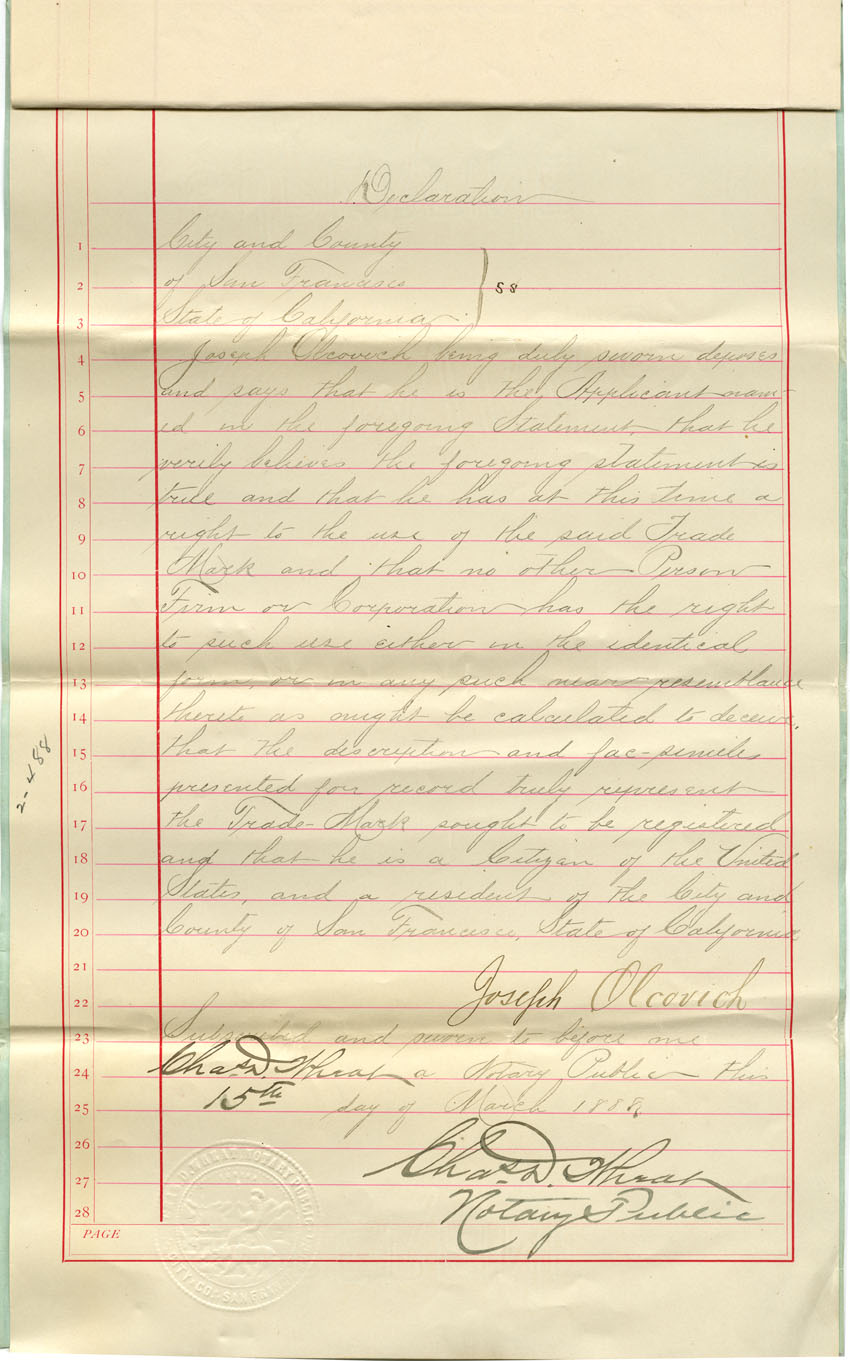 Declaration
1 City and County
2 of San Francisco } SS
3 State of California.
4 Joseph Olcovich being duly sworn deposes
5 and says that he is the Applicant nam-
6 ed in the foregoing Statement, that he
7 verily believes the foregoing statement is
8 true and that he has at this time a
9 right to the use of the said Trade
10 Mark and that no other Person
11 Firm or Corporation has the right
12 to such use either in the identical
13 form, or in any such near resemblance
14 thereto as might be calculated to deceive,
15 that the discription and fac-similes
16 presented for record truly represent
17 the Trade-Mark sought to be registered
18 and that he is a Citizen of the United
19 States, and a resident of the City and
20 County of San Francisco, State of California
21
22 Joseph Olcovich
23 Subscribed and sworn to before me
24 Chas. D. Wheat a Notary Public this
25 15th day of March 1888,
26 Chas. D. Wheat
27 Notary Public
28
PAGE
2-488
NOTARY PUBLIC
CITY & CO. SAN FRAN